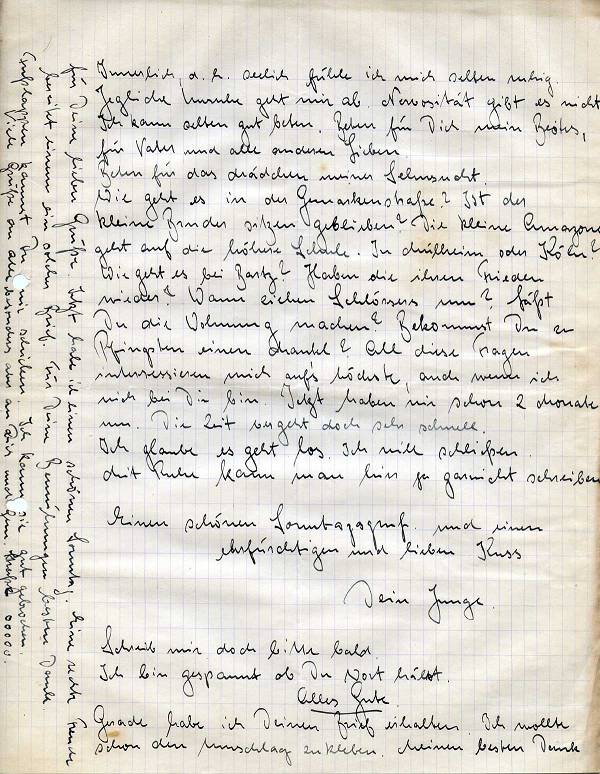 Innerlich, d. h. seelisch fühle ich mich selten ruhig.
Jegliche Unruhe geht mir ab. Nervosität gibt es nicht
Ich kann selten gut beten. Beten für Dich mein Bestes,
für Vater und alle anderen Lieben.
Beten für das Mädchen meiner Sehnsucht.
Wie geht es in der Gemarkenstraße? Ist der
kleine Bruder sitzen geblieben? Die kleine Amazone
geht auf die höhere Schule. In Mülheim oder Köln?
Wie geht es bei Bartz? Haben die ihren Frieden
wieder? Wann ziehen Schlössers um? Läßt
Du die Wohnung machen? Bekommst Du zu
Pfingsten einen Mantel? All diese Fragen
interessieren mich aufs höchste, auch wenn ich
nicht bei Dir bin. Jetzt haben wir schon 2 Monate
um. Die Zeit vergeht doch sehr schnell.
Ich glaube es geht los. Ich will schließen.
Mit Ruhe kann man hier ja garnicht schreiben
Einen schönen Sonntagsgruß und einen
ehrfürchtigen und lieben Kuss
Dein Junge.
Schreib mir doch bitte bald.
Ich bin gespannt ob Du Wort hältst.
Alles Gute
Gerade habe ich Deinen Brief erhalten. Ich wollte
schon den Umschlag zukleben. Meinen besten Dank
für Deine lieben Grüße. Jetzt habe ich einen schönen Sonntag. Eine rechte Freude
bereitet einem ein solcher Brief. Für Deine Bemühungen besten Dank
Fußlappen kannst Du mir schicken. Ich kann sie gut gebrauchen.
Viele Grüße an alle besonders aber an Dich und